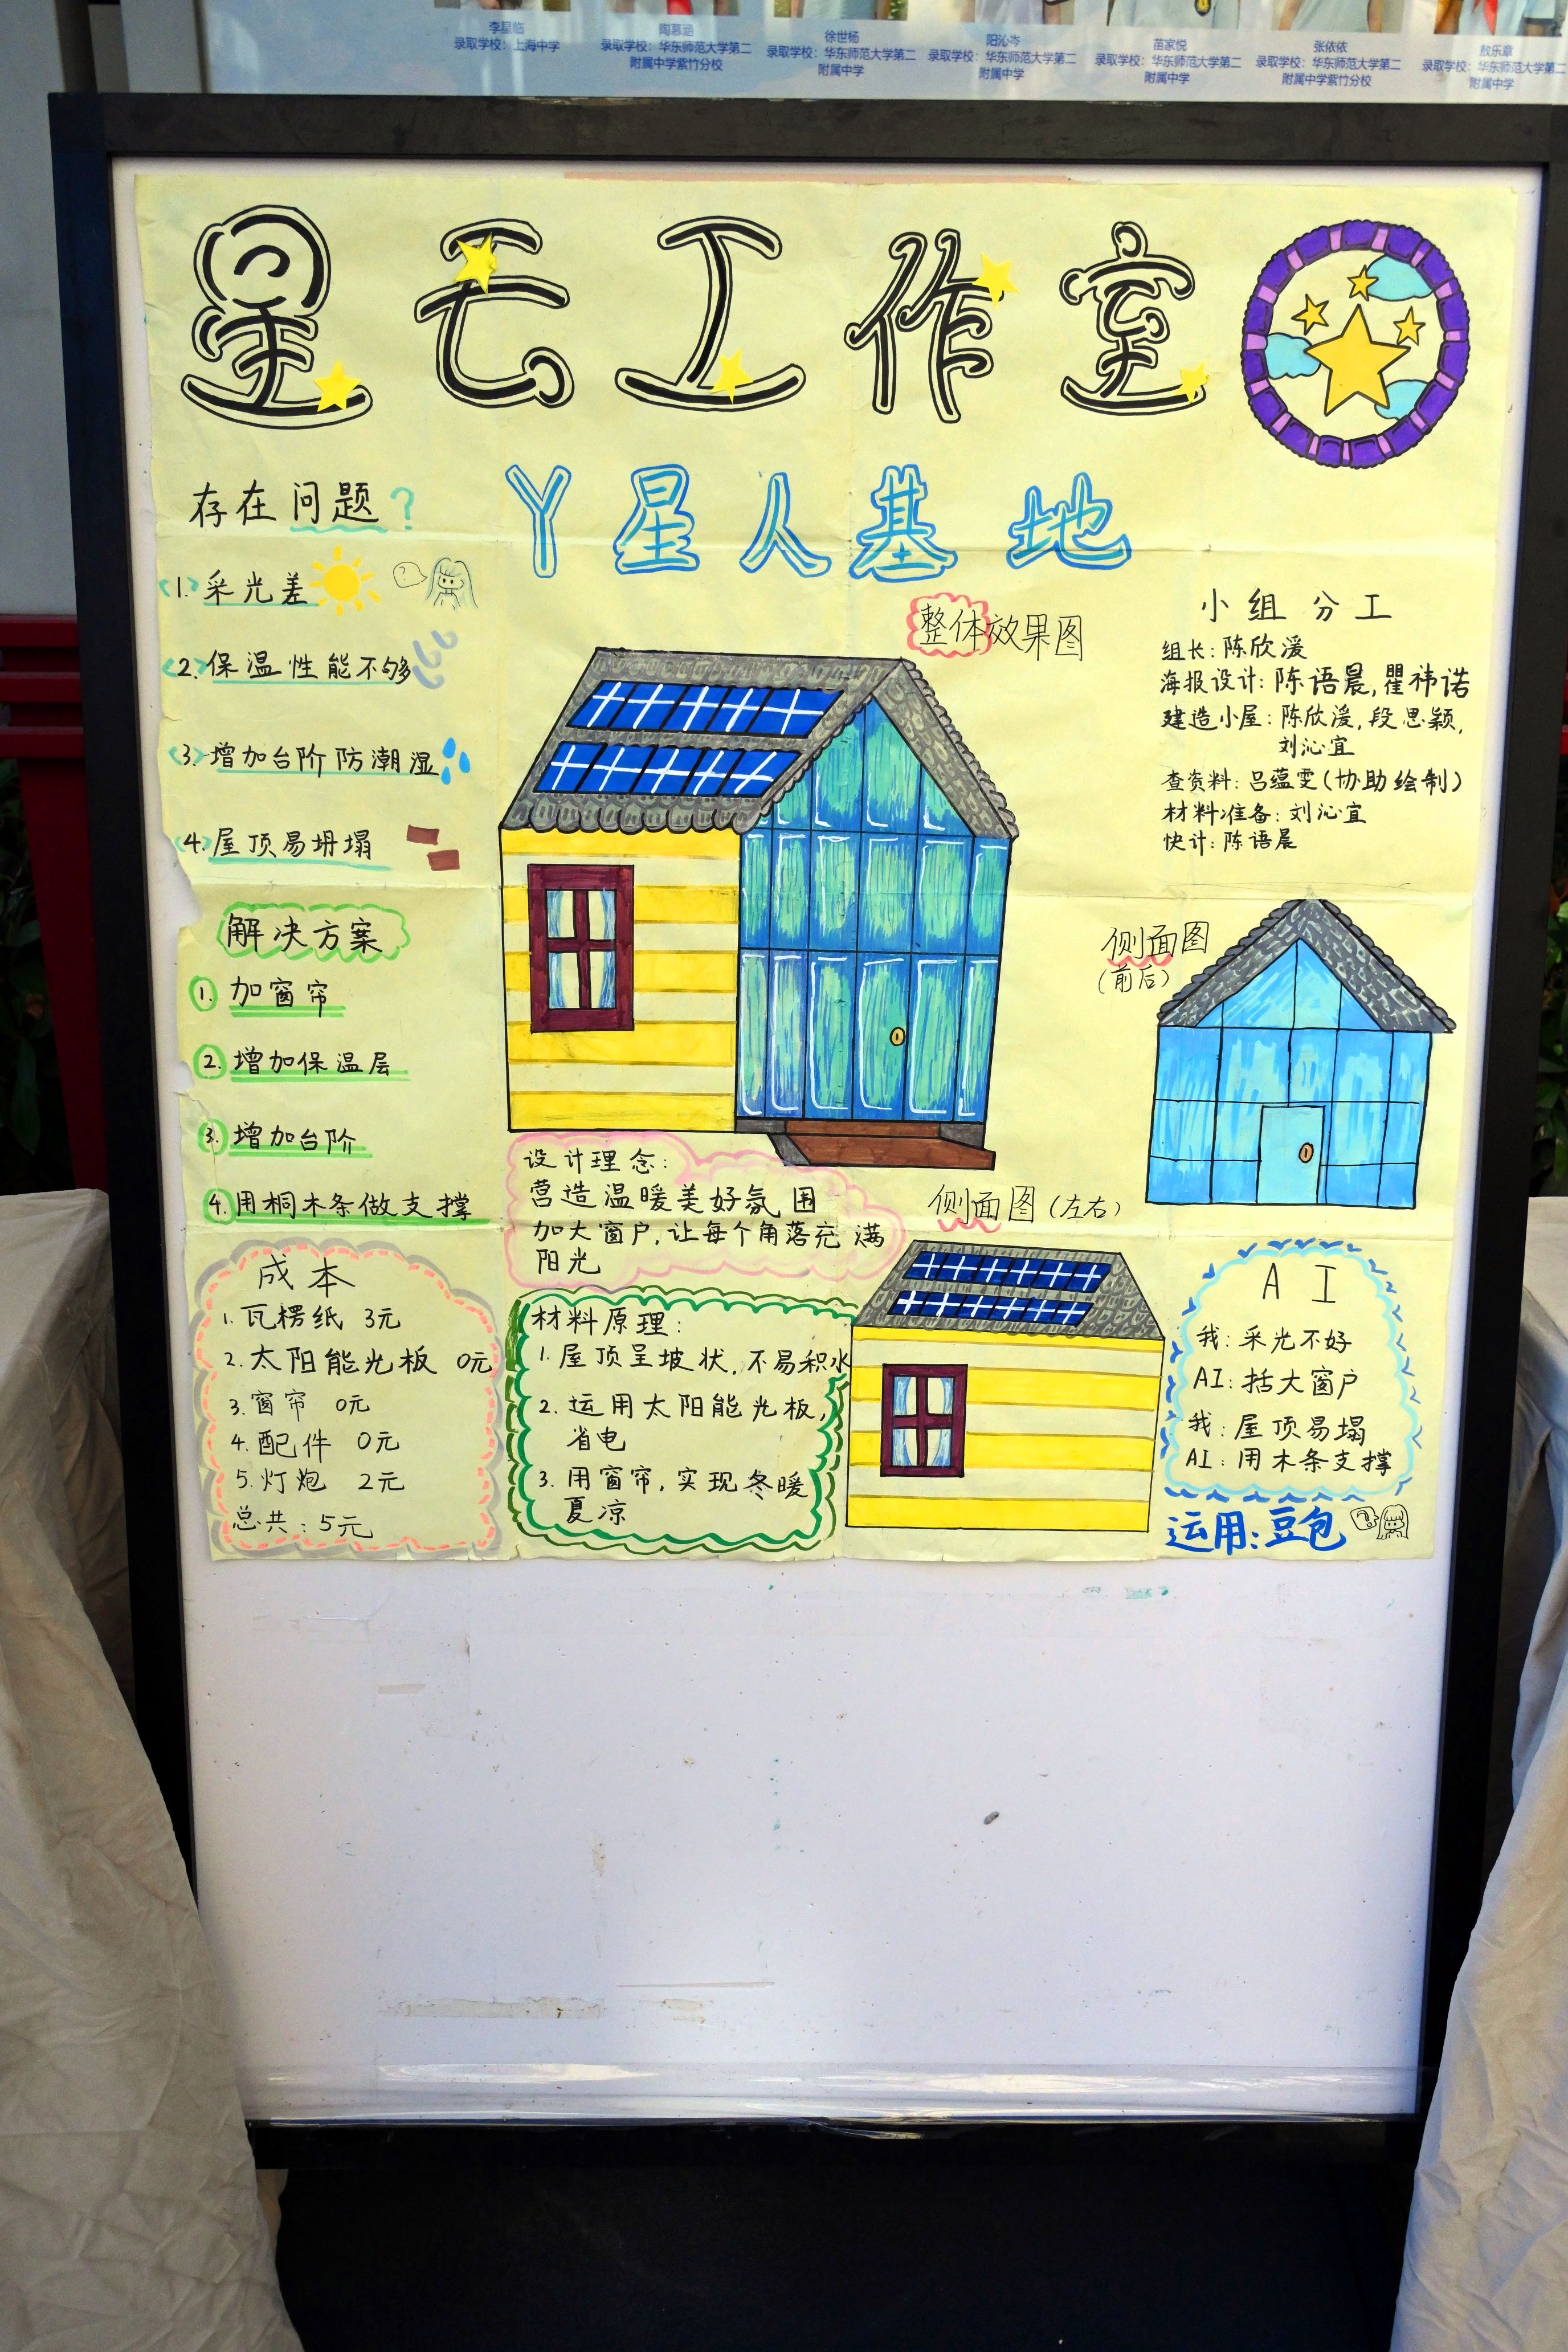 李星临
录取学校：上海中学
陶慕涵
录取学校：华东师范大学第二
附属中学紫竹分校
徐世杨
录取学校：华东师范大学第二
附属中学
阳沁岑
录取学校：华东师范大学第二
附属中学
苗家悦
录取学校：华东师范大学第二
附属中学
张依依
录取学校：华东师范大学第二
附属中学紫竹分校
敖乐章
录取学校：华东师范大学第二
附属中学
星云工作室
丫星人基地
存在问题？
1.采光差
2.保温性能不够
3.增加台阶防潮湿
4.屋顶易坍塌
解决方案
1.加窗帘
2.增加保温层
3.增加台阶
4.用桐木条做支撑
成本
1.瓦楞纸 3元
2.太阳能光板 0元
3.窗帘 0元
4.配件 0元
5.灯炮 2元
总共：5元
整体效果图
设计理念：
营造温暖美好氛围
加大窗户，让每个角落充满
阳光
材料原理：
1.屋顶呈坡状，不易积水
2.运用太阳能光板，
省电
3.用窗帘，实现冬暖
夏凉
小组分工
组长：陈欣湲
海报设计：陈语晨，瞿祎诺
建造小屋：陈欣湲，段思颖，
刘沁宜
查资料：吕蕴雯（协助绘制）
材料准备：刘沁宜
快计：陈语晨
侧面图
（前后）
侧面图（左右）
AI
我：采光不好
AI：括大窗户
我：屋顶易塌
AI：用木条支撑
运用：豆包